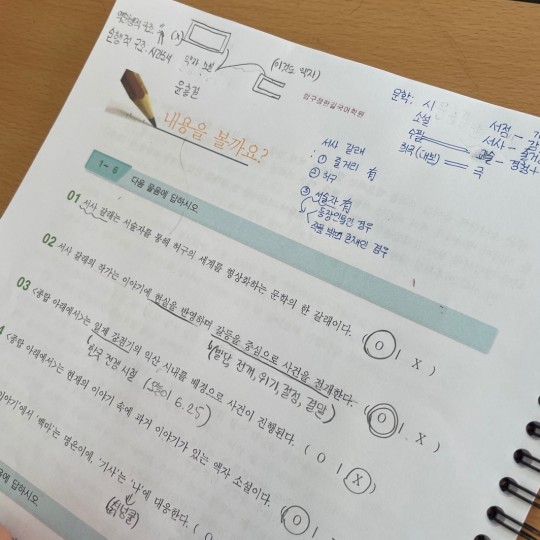 순행적 구조
액자 소설
윤흥길
압구정한길국어학원
문학: 시
소설
수필
희곡(대본)
극
내용을 볼까요?
서사 갈래
① 줄거리 有
② 허구
③ 서술자 有
등장인물인 경우
작품 밖에 존재한 경우
1-6 다음 물음에 답하시오.
01 서사 갈래는 서술자를 통해 허구의 세계를 형상화하는 문학의 한 갈래이다. ( O | X )
02 서사 갈래의 작가는 이야기에 현실을 반영하며 갈등을 중심으로 사건을 전개한다. ( O | X )
(발단, 전개, 위기, 절정, 결말)
03 <종합 아래에서>는 일제 강점기의 익산 시내를 배경으로 사건이 진행된다. ( O | X )
한국 전쟁 시절 6.25)
4 <종합 아래에서>는 현재의 이야기 속에 과거 이야기가 있는 액자 소설이다. ( O | X
이야기'에서 '백마'는 명은이에, '기사'는 '나'에 대응한다. ( O
에 답하시오.